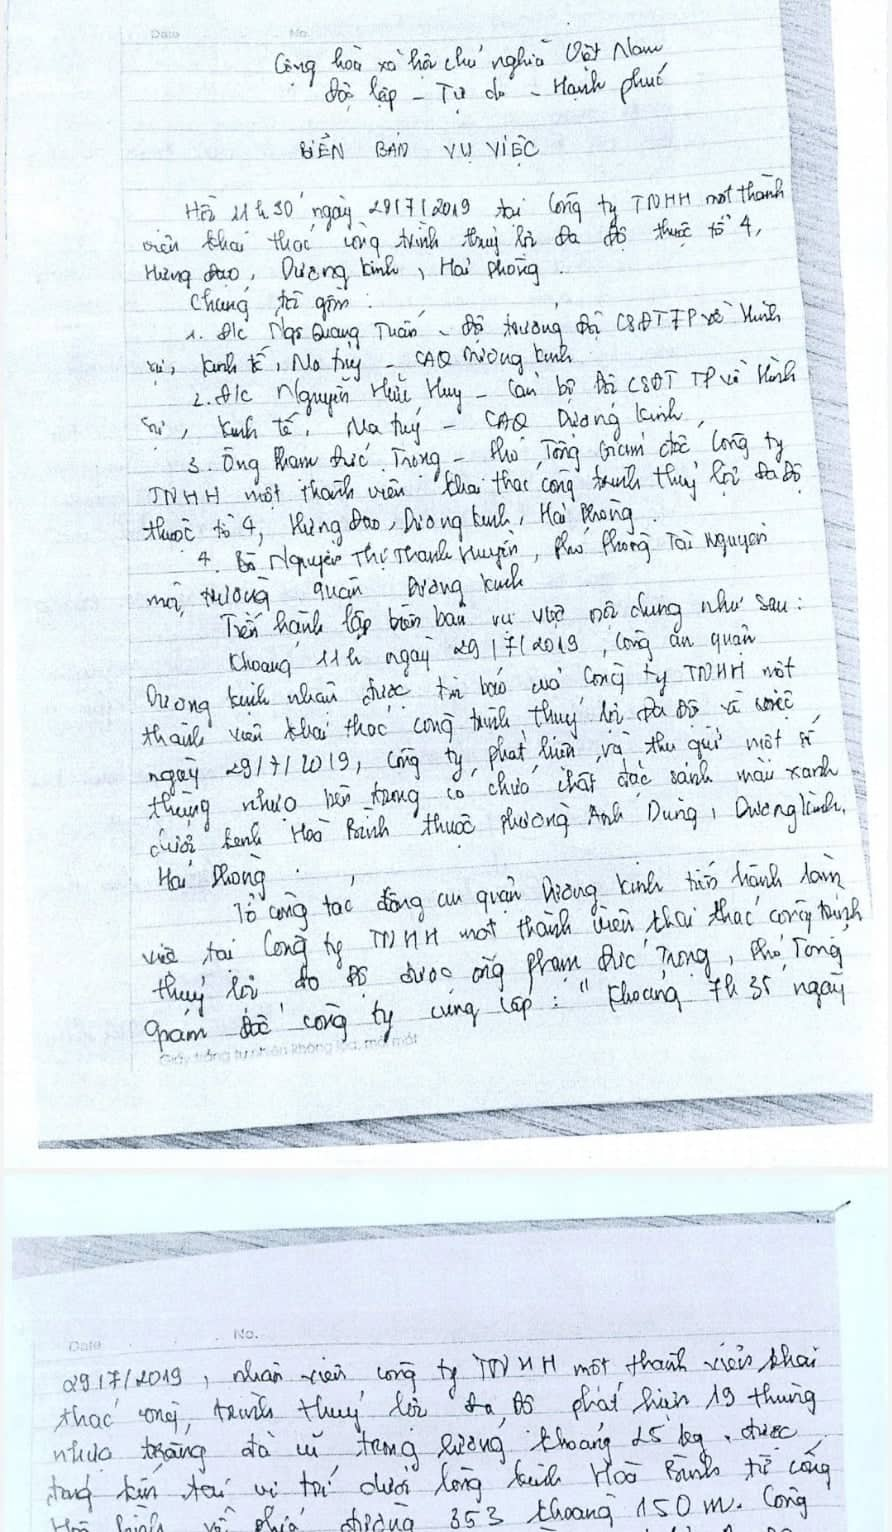 Date No.
Cộng hòa xã hội chủ nghĩa Việt Nam
Độc lập - Tự do - Hạnh phúc
BIÊN BẢN VỤ VIỆC
Hồi 11h30' ngày 29/7/2019 tại Công ty TNHH một thành
viên khai thác công trình thủy lợi Đa Độ thuộc tổ 4,
Hưng Đạo, Dương Kinh, Hải Phòng
Chúng tôi gồm:
1. Đ/c Ngô Quang Tuấn - Đội trưởng Đội CSĐTTP về Hình
sự, Kinh tế, Ma túy - CAQ Dương Kinh
2. Đ/c Nguyễn Hữu Huy - Cán bộ Đội CSĐT TP về Hình
sự, Kinh tế, Ma túy - CAQ Dương Kinh
3. Ông Phạm Đức Trong - Phó Tổng Giám đốc Công ty
TNHH một thành viên khai thác công trình thủy lợi Đa Độ
thuộc tổ 4, Hưng Đạo, Dương Kinh, Hải Phòng.
4. Bà Nguyễn Thị Thanh Huyền, Phó Phòng Tài Nguyên
môi trường quận Dương Kinh
Tiến hành lập biên bản vụ việc nội dung như sau:
Khoảng 11h ngày 29/7/2019, Công an quận
Dương Kinh nhận được tin báo của Công ty TNHH một
thành viên khai thác công trình thủy lợi Đa Độ về việc
ngày 29/7/2019, Công ty phát hiện và thu giữ một số
thùng nhựa bên trong có chứa chất đặc sánh màu xanh
dưới kênh Hòa Bình thuộc phường Anh Dũng, Dương Kinh,
Hải Phòng.
Tổ công tác công an quận Dương Kinh tiến hành làm
việc tại Công ty TNHH một thành viên khai thác công trình
thủy lợi Đa Độ được ông Phạm Đức Trong, Phó Tổng
Giám đốc công ty cung cấp: "Khoảng 7h35' ngày
Giấy trắng tự nhiên không lóa, mỏi mắt
Date No.
29/7/2019, nhân viên công ty TNHH một thành viên khai
thác công trình thủy lợi Đa Độ phát hiện 19 thùng
nhựa trắng đã cũ trọng lượng khoảng 25 kg, được
đóng kín tại vị trí dưới lòng kênh Hòa Bình từ cống
Hòa Bình về phía đường 353 khoảng 150 m. Công